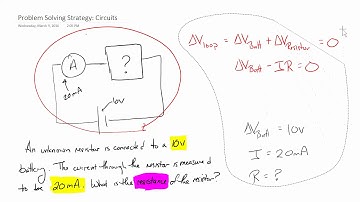 Problem Solving Strategy: Circuits
Wednesday, March 9, 2016 2:05 PM
A
?
20mA
10v
ΔV_loop = ΔV_Batt + ΔV_Resistor = 0
ΔV_Batt - IR = 0
ΔV_Batt = 10v
I = 20mA
R = ?
An unknown resistor is connected to a 10v
battery. The current through the resistor is measured
to be 20mA. What is the resistance of the resistor?